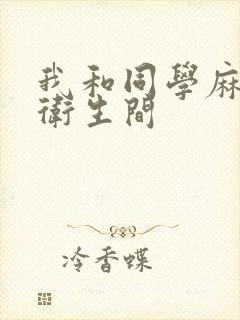 我和同學麻
衛生間
冷香蝶